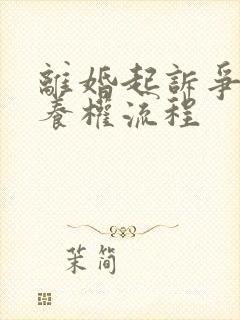 離婚起訴爭
養權流程
茉简